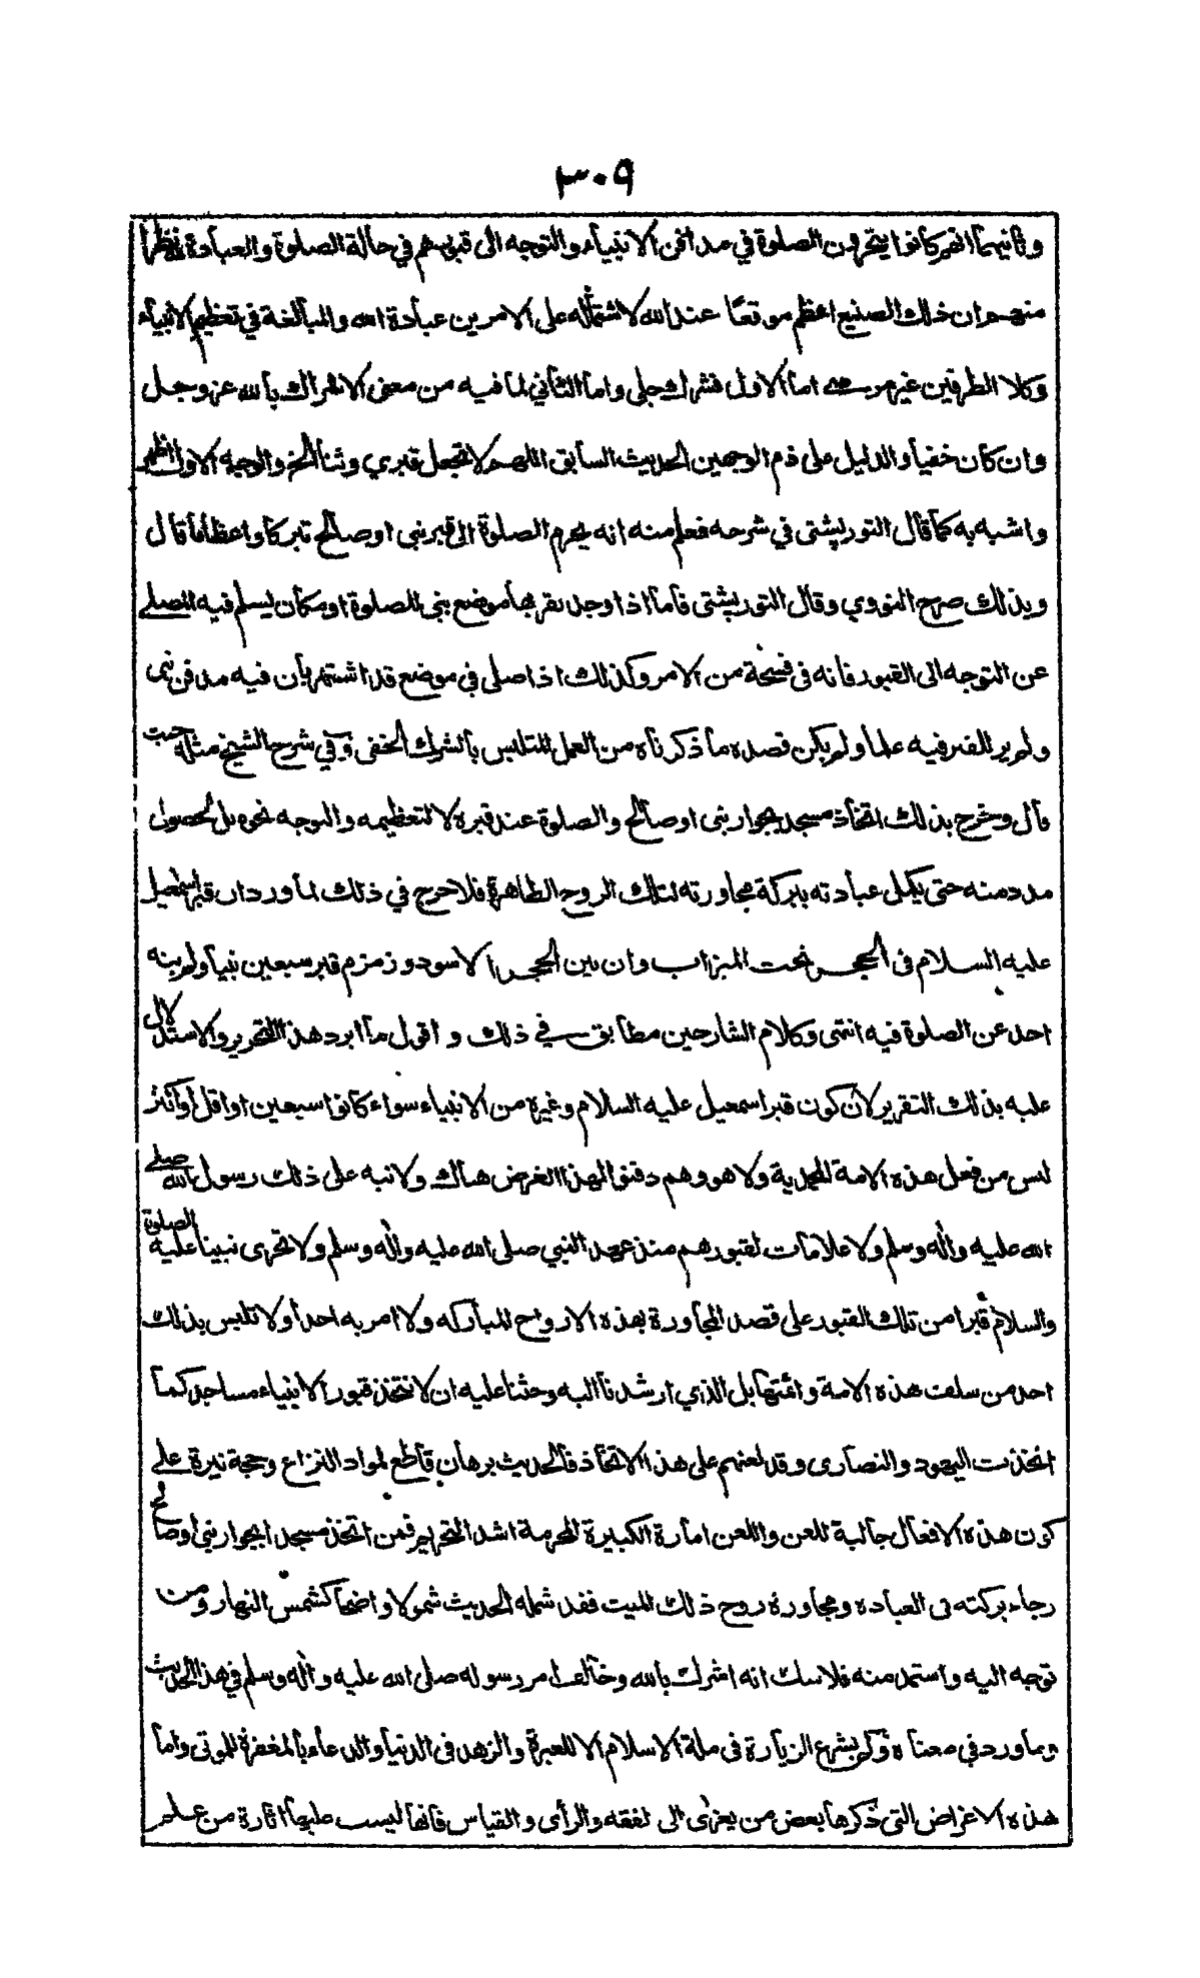 ٣٠٩
وثانيهما انهم كانوا يتحرون الصلوة في مدافن الانبياء والتوجه الى قبورهم في حالة الصلوة والعبادة لله نظرا
منهم ان ذلك الصنيع اعظم موقعا عند الله لاشتماله على الامرين عبادة الله والمبالغة في تعظيم الانبياء
وكلا الطرفين غير مرضي اما الاول فشرك جلي واما الثاني لما فيه من معنى الاشراك بالله عز وجل
وان كان خفيا والدليل على ذم الوجهين الحديث السابق اللهم لا تجعل قبري وثنا الخ والوجه الاول اظهر
واشبه به كما قال التوربشتى في شرحه فعلم منه انه يحرم الصلوة الى قبر نبى او صالح تبركا واعظاما قال
وبذلك صرح النووي وقال التوربشتى فاما اذا وجد بقربها موضع بني للصلوة او مكان يسلم فيه المصلے
عن التوجه الى القبور فانه فى فسحة من الامر وكذلك اذا صلى في موضع قد اشتهر بان فيه مدفن نبى
ولم ير للقبر فيه علما ولم يكن قصده ما ذكرناه من العمل المتلبس بالشرك الخفى وفي شرح الشيخ مثله حيث
قال وخرج بذلك اتخاذ مسجد بجوار نبى او صالح والصلوة عند قبره لا لتعظيمه والتوجه نحوه بل لحصول
مدد منه حتى يكمل عبادته ببركة مجاورته لتلك الروح الطاهرة فلا حرج في ذلك لما ورد ان قبر اسمعيل
عليه السلام فى الحجر تحت الميزاب وان بين الحجر الاسود وزمزم قبر سبعين نبيا ولم ينه
احد عن الصلوة فيه انتهى وكلام الشارحين مطابق في ذلك و اقول ما ابرد هذا التحرير والاستدلال
عليه بذلك التقرير لان كون قبر اسمعيل عليه السلام وغيره من الانبياء سواء كانوا سبعين او اقل او اكثر
ليس من فعل هذه الامة المحمدية ولا هو وهم دفنوا لهذا الغرض هناك ولا نبه على ذلك رسول الله صلے
الله عليه واله وسلم ولا علامات لقبورهم منذ عهد النبي صلى الله عليه واله وسلم ولا تحرى نبينا عليه الصلوة
والسلام قبرا من تلك القبور على قصد المجاورة بهذه الارواح المباركه ولا امر به احدا ولا تلبس بذلك
احد من سلف هذه الامة وائمتها بل الذي ارشدنا اليه وحثنا عليه ان لا نتخذ قبور الانبياء مساجد كما
اتخذت اليهود والنصارى وقد لعنهم على هذا الاتخاذ فالحديث برهان قاطع لمواد النزاع وحجة نيرة علے
كون هذه الافعال جالبة للعن واللعن امارة الكبيرة المحرمة اشد التحريم فمن اتخذ مسجدا بجوار نبي او صالح
رجاء بركته فى العباده ومجاورة روح ذلك الميت فقد شمله الحديث شمولا واضحا كشمس النهار ومن
توجه اليه واستمد منه فلا شك انه اشرك بالله وخالف امر رسوله صلى الله عليه واله وسلم في هذا الحديث
وما ورد في معناه ولم يشرع الزيارة فى ملة الاسلام الا للعبرة والزهد فى الدنيا والدعاء بالمغفرة للموتى واما
هذه الاغراض التي ذكرها بعض من يعزى الى الفقه والرأى والقياس فانها ليست عليها اثارة من علم